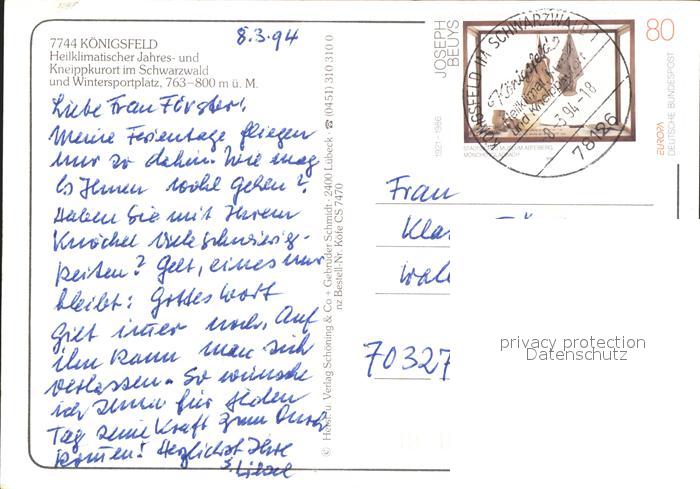 8.3.94
7744 KÖNIGSFELD
Heilklimatischer Jahres- und
Kneippkurort im Schwarzwald
und Wintersportplatz, 763–800 m ü. M.
Liebe Frau Förster!
Meine Ferientage fliegen
nur so dahin. Wie mag
es Ihnen wohl gehen?
Haben Sie mit Ihrem
Knöchel viele Schwierig-
keiten? Gelt, eines nur
bleibt: Gottes Wort
gilt immer noch. Auf
ihn kann man sich
verlassen. So wünsche
ich Ihnen für jeden
Tag seine Kraft zum Durch
kommen! Herzlichst Ihre
Liesel
© Verlag Schöning & Co + Gebrüder Schmidt · 2400 Lübeck ☎ (0451) 310 310 0
nz Bestell-Nr. Köfe CS 7470
JOSEPH
BEUYS
1921–1986
80
EUROPA
DEUTSCHE BUNDESPOST
STÄDTISCHES MUSEUM ABTEIBERG
MÖNCHENGLADBACH
KÖNIGSFELD IM SCHWARZWALD 1
Königsfeld
Heilklimat.
und Kneippkurort
8.3.94-18
78126
Frau
Kla
70327
privacy protection
Datenschutz